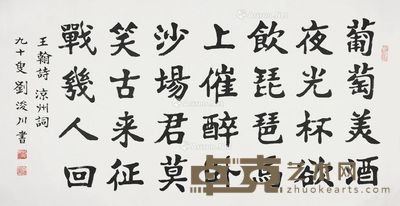 葡萄美酒
夜光杯欲
飲琵琶馬
上催醉卧
沙場君莫
笑古来征
戰幾人回
王翰詩 涼州詞
九十叟劉浚川書
卓克艺术网
zhuokearts.com